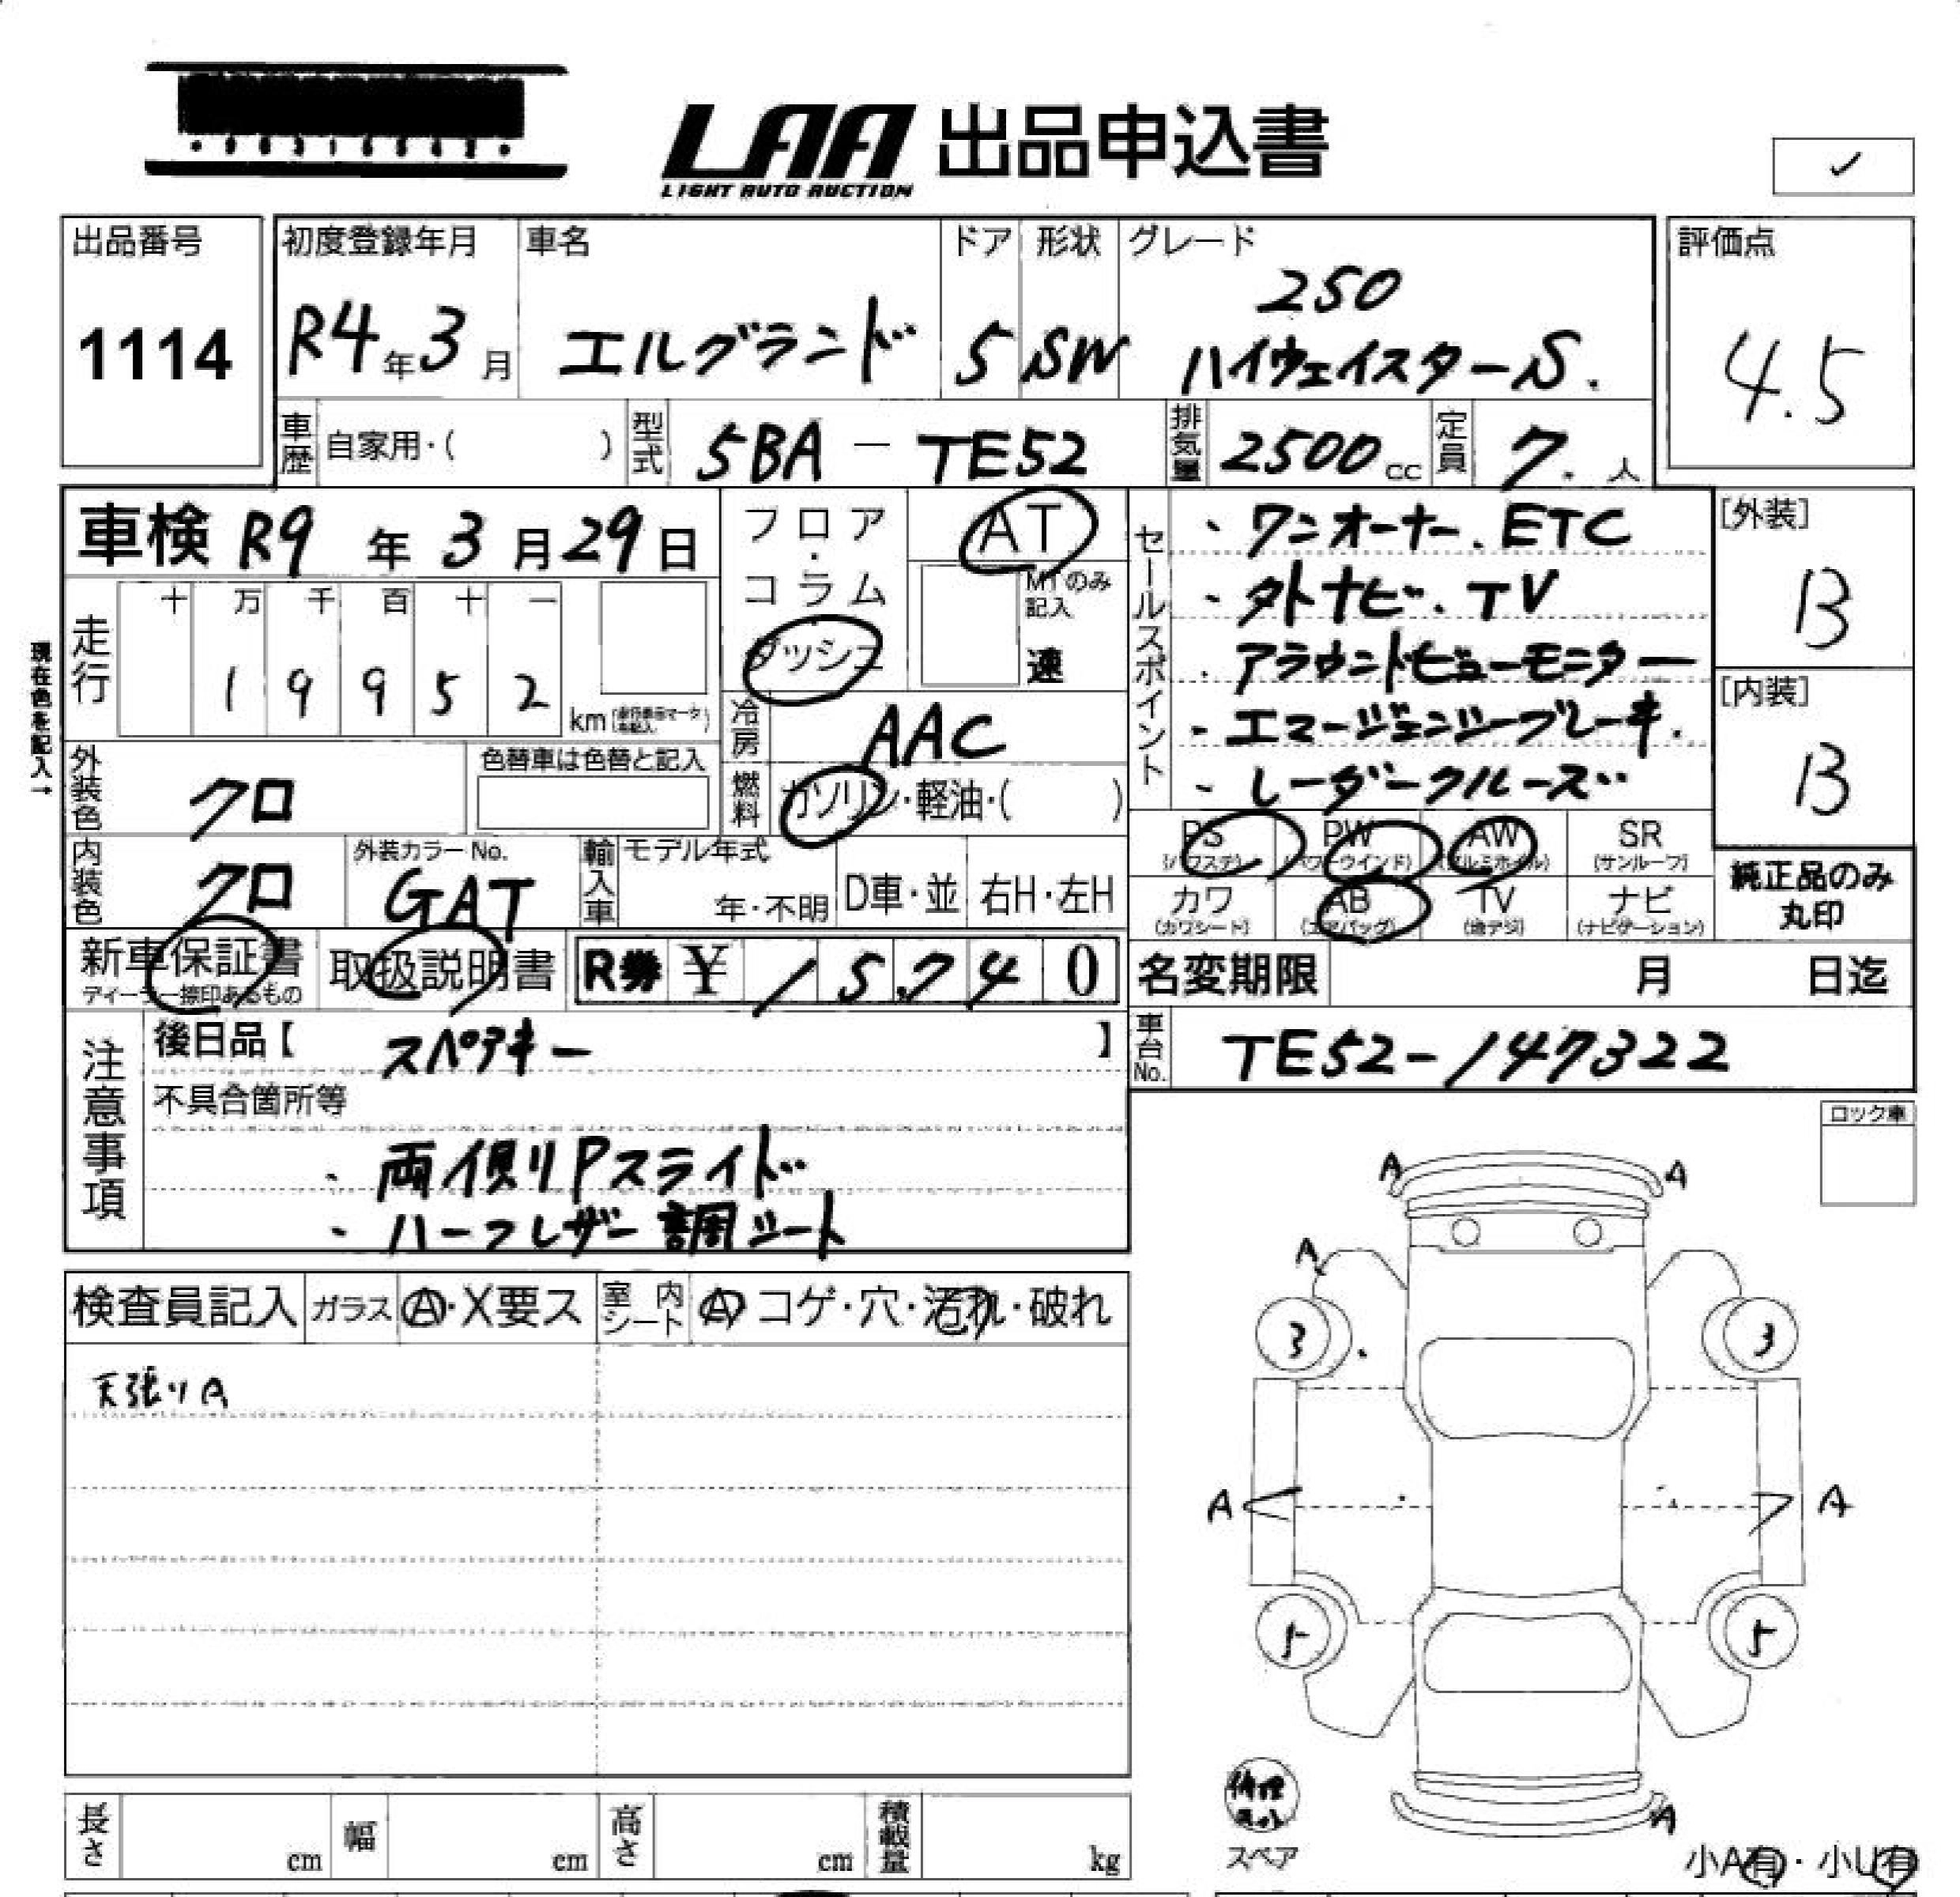 LAA 出品申込書
LIGHT AUTO AUCTION
✓
出品番号 初度登録年月 車名 ドア 形状 グレード 評価点
1114 R4年3月 エルグランド 5 SW 250 4.5
ハイウェイスターS.
車歴 自家用・( ) 型式 5BA-TE52 排気量 2500cc 定員 7.人
車検 R9年3月29日
フロア・コラム
ダッシュ
AT
MTのみ記入
速
セールスポイント
・ワンオーナー.ETC
・外ナビ.TV
・アラウンドビューモニター
・エマージェンシーブレーキ.
・レーダークルーズ
[外装]
B
[内装]
B
現在色を記入→
走行 十 万 千 百 十 一
1 9 9 5 2 km
冷房 AAC
燃料 ガソリン・軽油・( )
外装色 クロ
色替車は色替と記入
内装色 クロ
外装カラーNo.
GAT
輸入車 モデル年式
年・不明 D車・並 右H・左H
PS PW AW SR
(パワステ) (パワーウインド) (アルミホイル) (サンルーフ)
カワ AB TV ナビ
(カワシート) (エアバッグ) (地デジ) (ナビゲーション)
純正品のみ
丸印
新車保証書 取扱説明書 R券 ¥ 15,740
ディーラー捺印あるもの
名変期限 月 日迄
車台No. TE52-147322
注意事項
後日品【 スペアキー 】
不具合箇所等
・両側Pスライド
・ハーフレザー調シート
ロック車
検査員記入 ガラス A・X要ス 室内シート A コゲ・穴・汚れ・破れ
天張りA
A A
A
3 3
A A
5 5
修理キット
スペア
A
小A有・小U有
長さ cm 幅 cm 高さ cm 積載量 kg